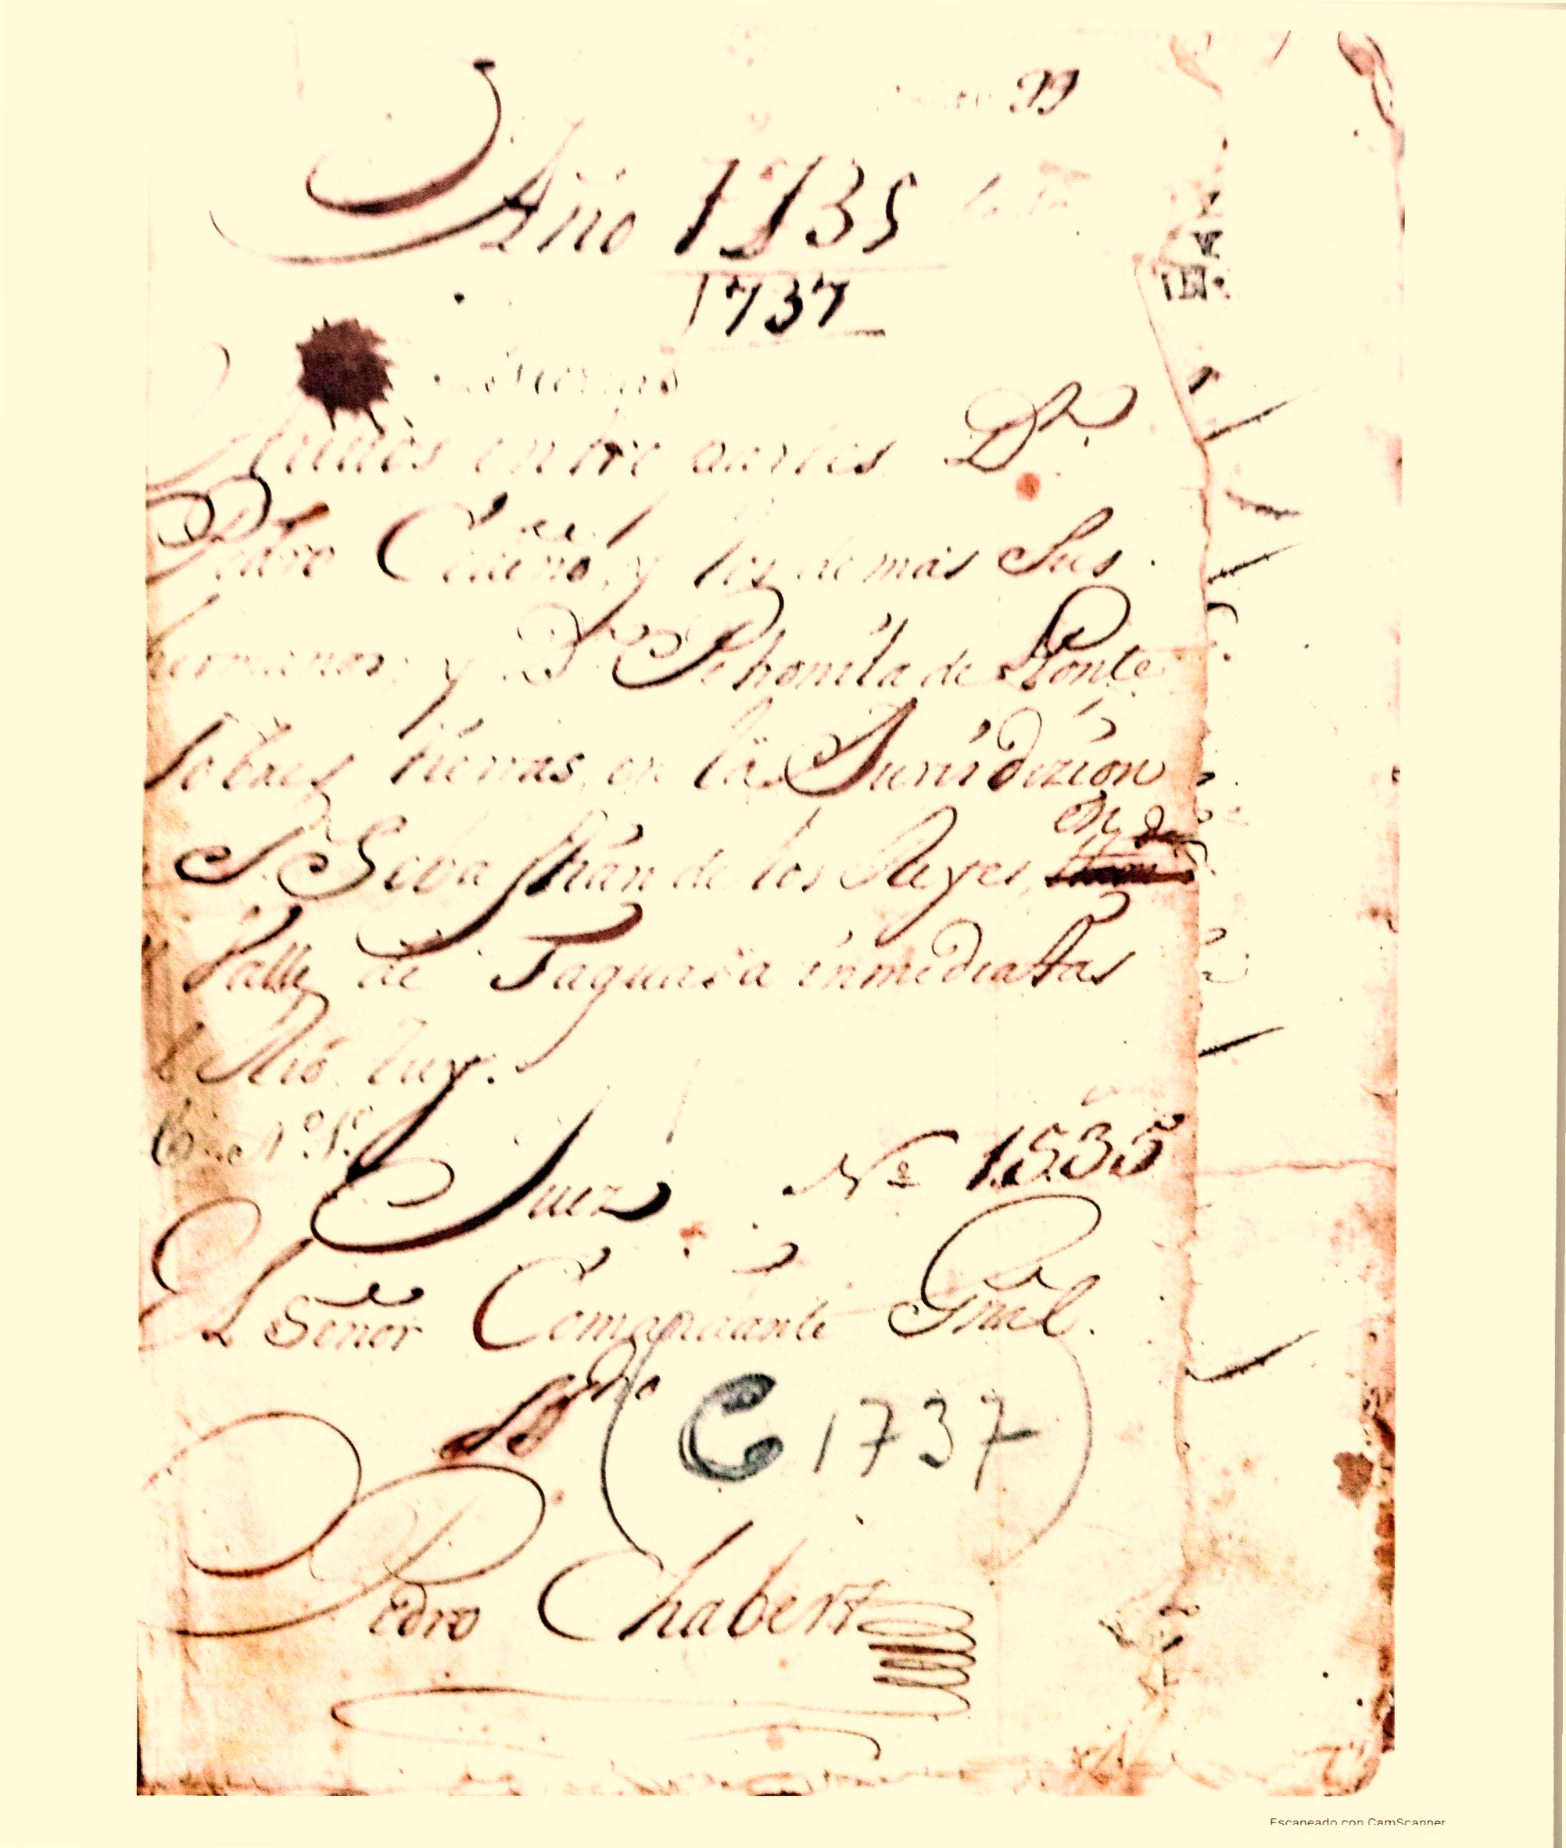 99
Año 1735
1737
Autos entre partes Dn.
Pedro Cedeño, y los demas Sus
hermanos; y Da. Pehonila de Ponte
sobres tierras, en la Jurisdizion
S. Sebasthian de los Reyes, en el
Valle de Taguasa inmediatas
Rio
Juez No 1535
El Señor Comandante Gnral.
SSno
(C 1737)
Pedro Chabert
Escaneado con CamScanner